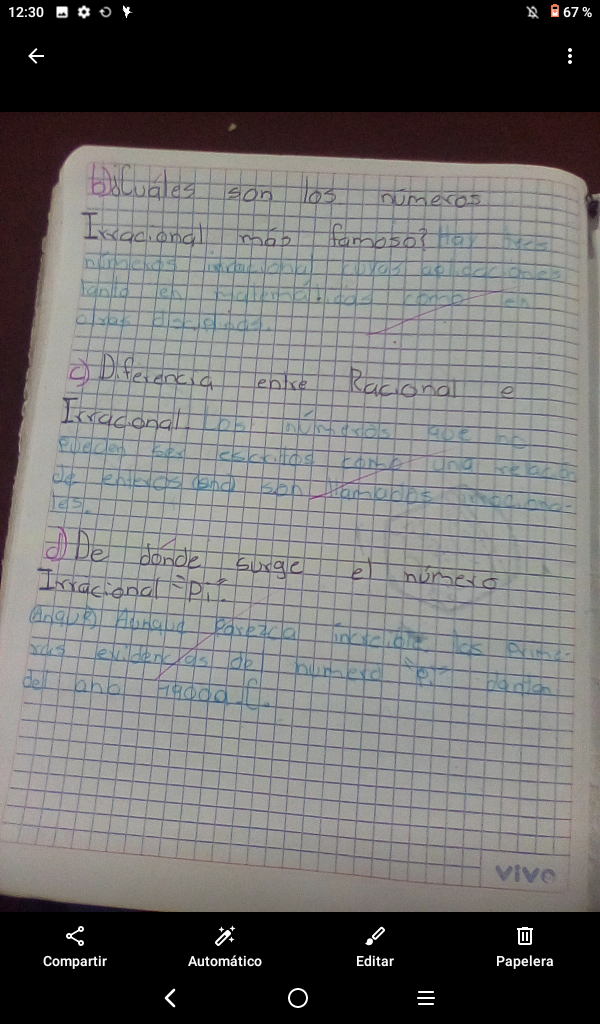 12:30
67 %
b) ¿Cuáles son los números
Irracional más famoso? Hay tres
números irracional cuyas aplicaciones
tanto en matemáticas como en
otras
c) Diferencia entre Racional e
Irracional. Los números que no
pueden ser escritos como una relación
de enteros son llamados irraciona-
les.
d) De dónde surge el número
Irracional "Pi".
Aunque Parezca increíble las prime-
ras evidencias de numero "Pi" datan
del
vivo
Compartir
Automático
Editar
Papelera